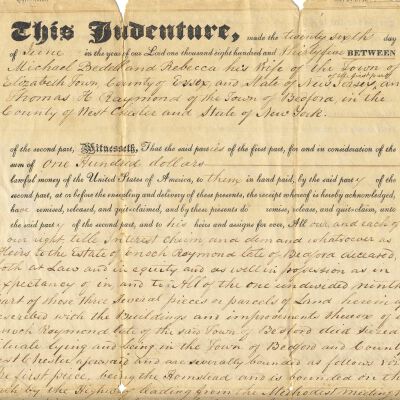 This Indenture, made the twenty sixth day
of June in the year of our Lord one thousand eight hundred and thirty five BETWEEN
Michael Bedell and Rebecca his Wife of the Town of
Elizabeth Town, County of Essex, and State of New Jersey, of the first part and
Thomas H Raymond of the Town of Bedford in the
County of West Chester and State of New York.
of the second part, Witnesseth, That the said parties of the first part, for and in consideration of the
sum of One Hundred dollars
lawful money of the United States of America, to them in hand paid, by the said party of the
second part, at or before the ensealing and delivery of these presents, the receipt whereof is hereby acknowledged,
have remised, released, and quit-claimed, and by these presents do remise, release, and quit-claim, unto
the said party of the second part, and to his heirs and assigns for ever, All our and each of
our right title Interest claim and demand whatsoever as
Heirs to the Estate of Enoch Raymond late of Bedford deceased,
both at Law and in equity and as well in possession as in
expectancy of in and to All of the one undivided ninth
part of those Three Several pieces or parcels of Land herein a
described with the Buildings and improvements thereon of
Enoch Raymond late of the said Town of Bedford died Seized
Situate lying and being in the Town of Bedford and County
West Chester aforesaid and are severally bounded as follows viz
The first piece, being the Homstead and is bounded on the
by the Highway leading from the Methodist meeting